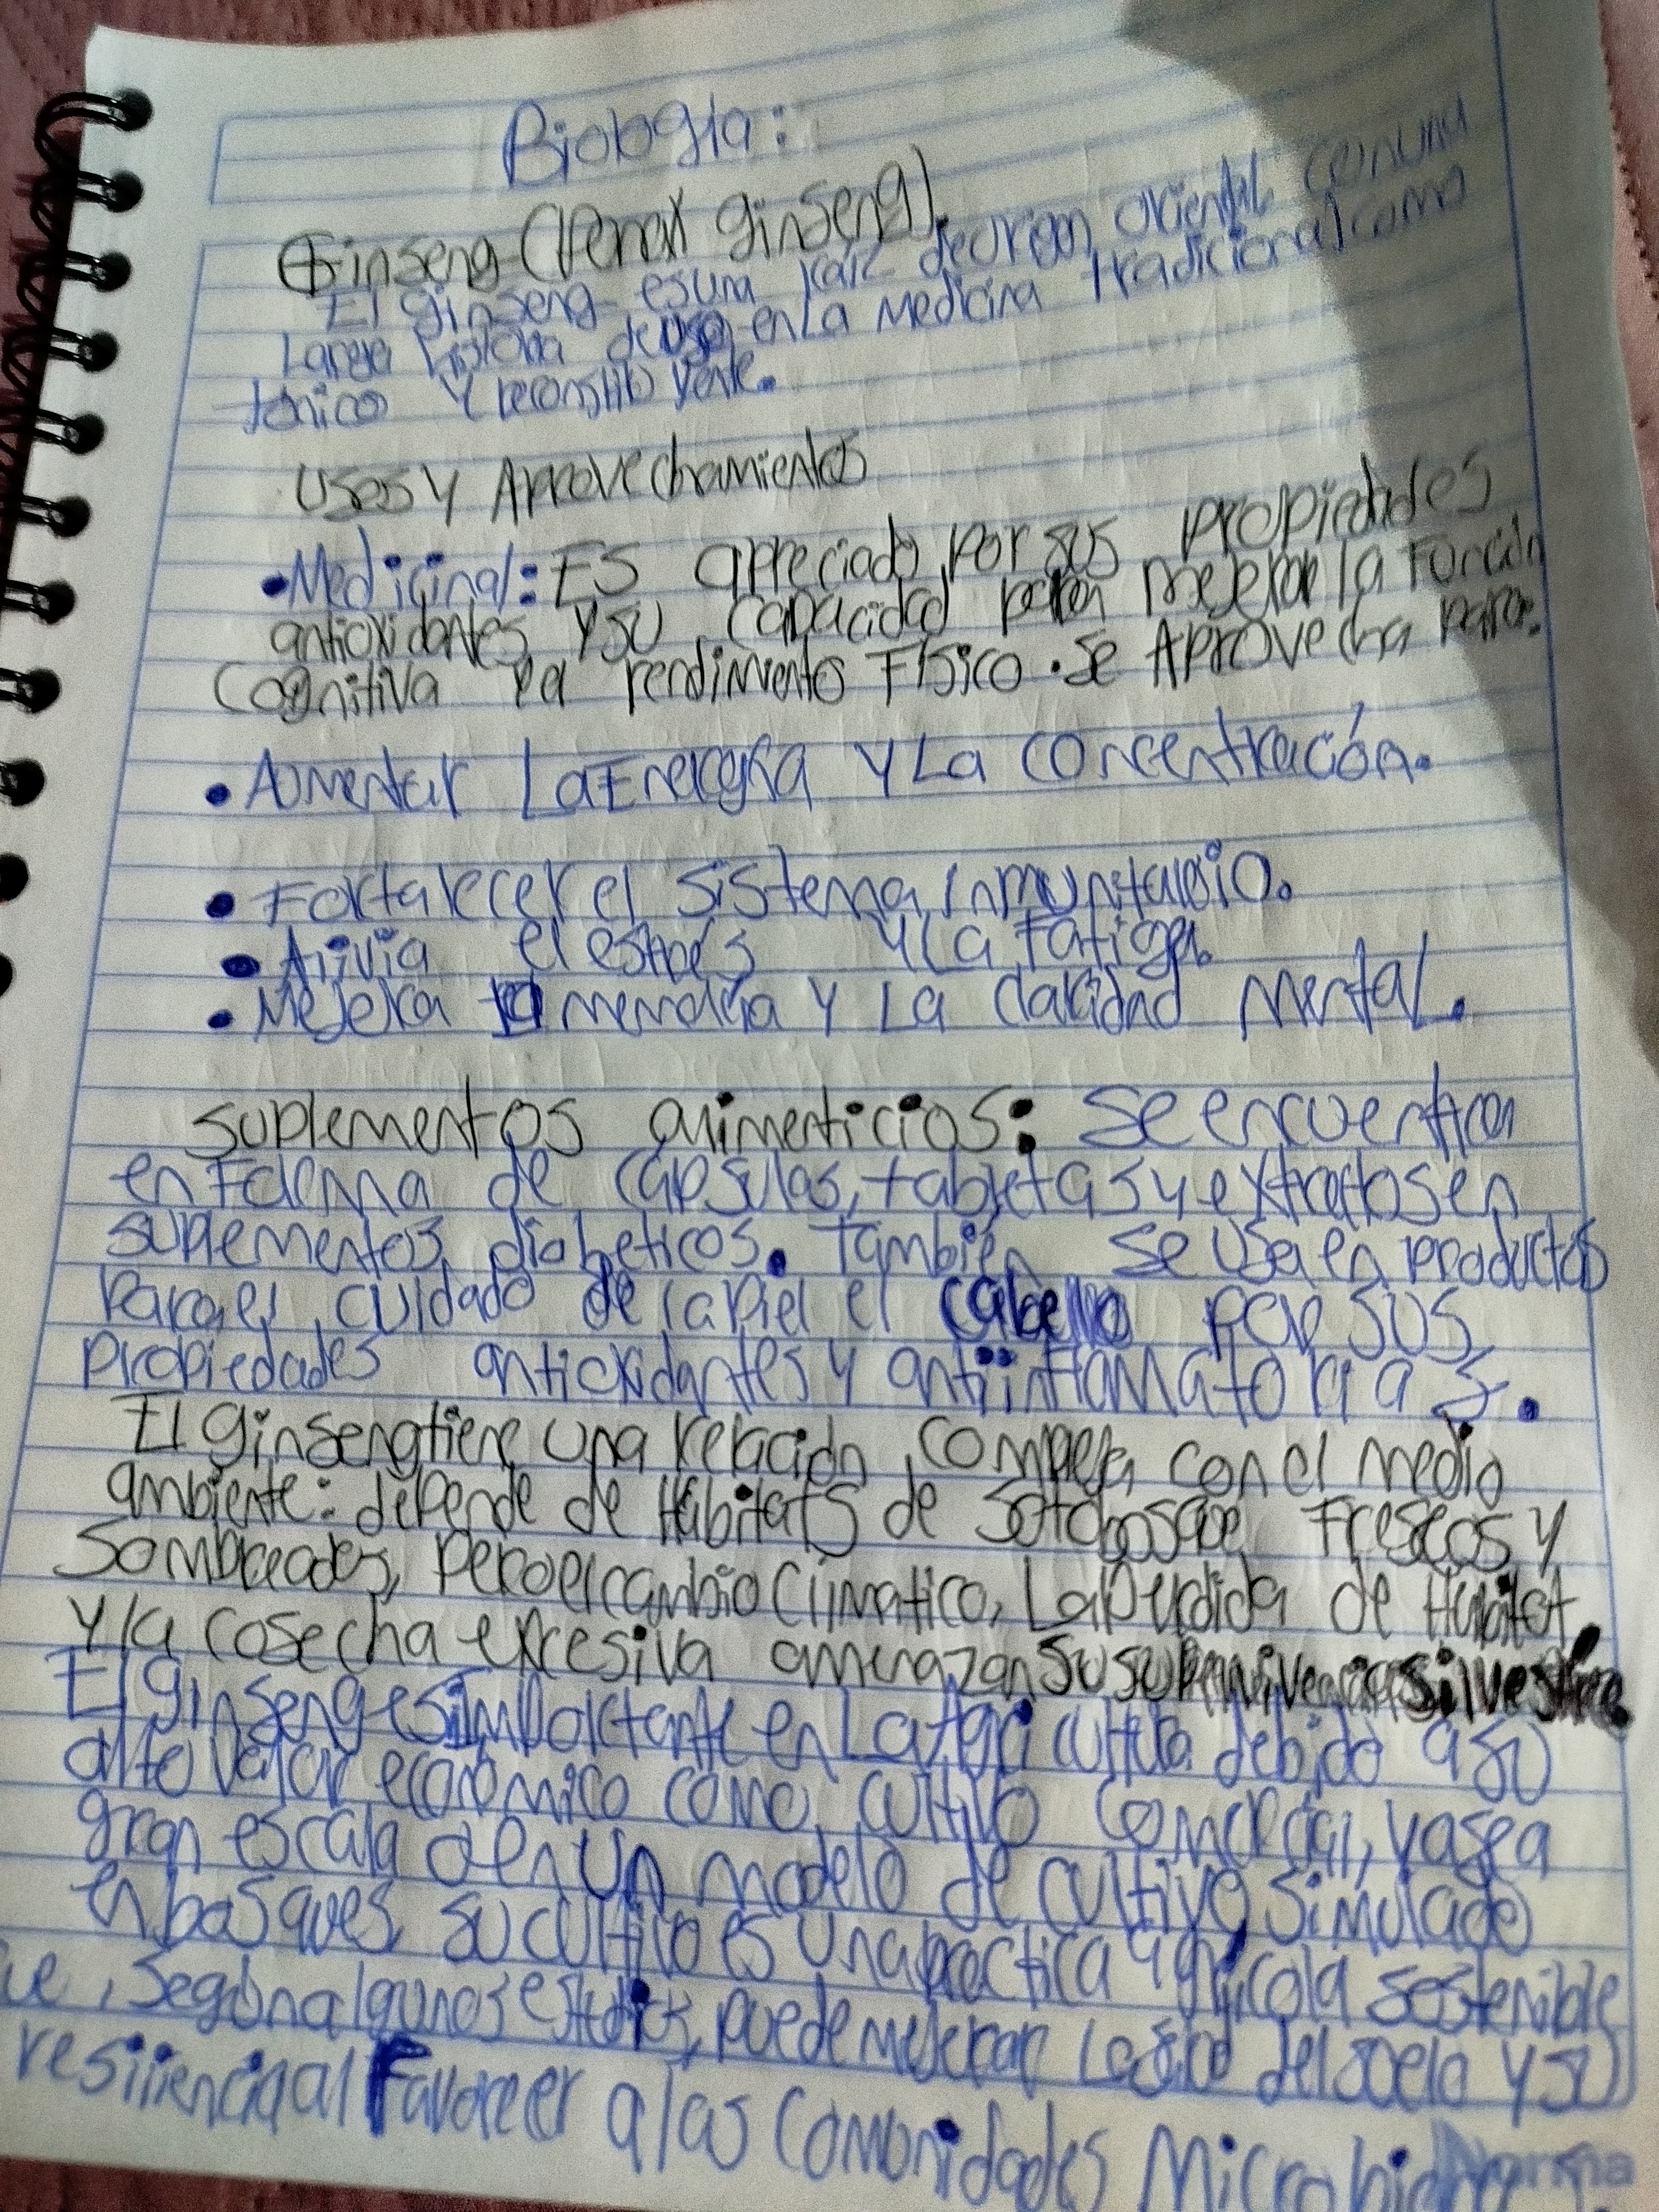 Biología:
Ginseng (Penax ginseng).
El ginseng es una raíz de origen oriental con una
Larga historia de uso en La Medicina tradicional como
tónico y reconstituyente.
Usos y Aprovechamientos
•Medicinal: Es apreciado por sus propiedades
antioxidantes y su capacidad para mejorar la Función
Cognitiva y a rendimiento Físico. Se Aprovecha para:
• Aumentar La Energía y La concentración.
• Fortalecer el sistema inmunitario.
• Alivia el estrés y La Fatiga.
• Mejora la memoria y La claridad Mental.
Suplementos alimenticios: se encuentra
en Forma de cápsulas, tabletas y extractos en
suplementos diabeticos. También se usa en productos
para el cuidado de la piel el cabello por sus
propiedades antioxidantes y antiinflamatorias.
El ginseng tiene una relación compleja con el medio
ambiente: depende de Hábitats de sotobosque Frescos y
Sombreados, pero el cambio Climatico, La perdida de Hábitat
y la cosecha excesiva amenazan su supervivencia silvestre.
El ginseng es importante en La Agricultura debido a su
alto valor económico como cultivo comercial, ya sea a
gran escala o en un modelo de cultivo simulado
en bosques, su cultivo es una práctica agrícola sostenible
ue, según algunos estudios, puede mejorar La salud del suelo y su
resiliencia al Favorecer a las Comunidades Microbianas
Norma